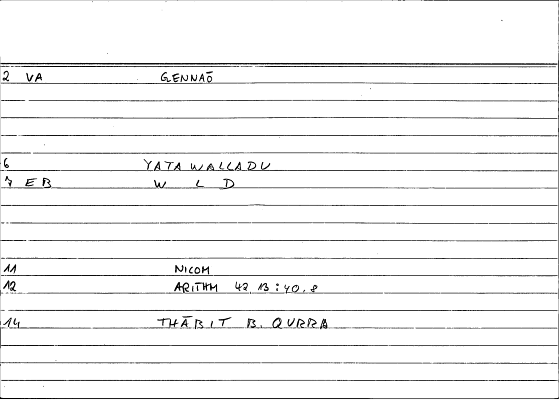 2 VA GENNAŌ
6 YATAWALLADU
7 EB W L D
11 NICOM
12 ARITHM 42 13 : 40.8
14 THĀBIT B. QURRA